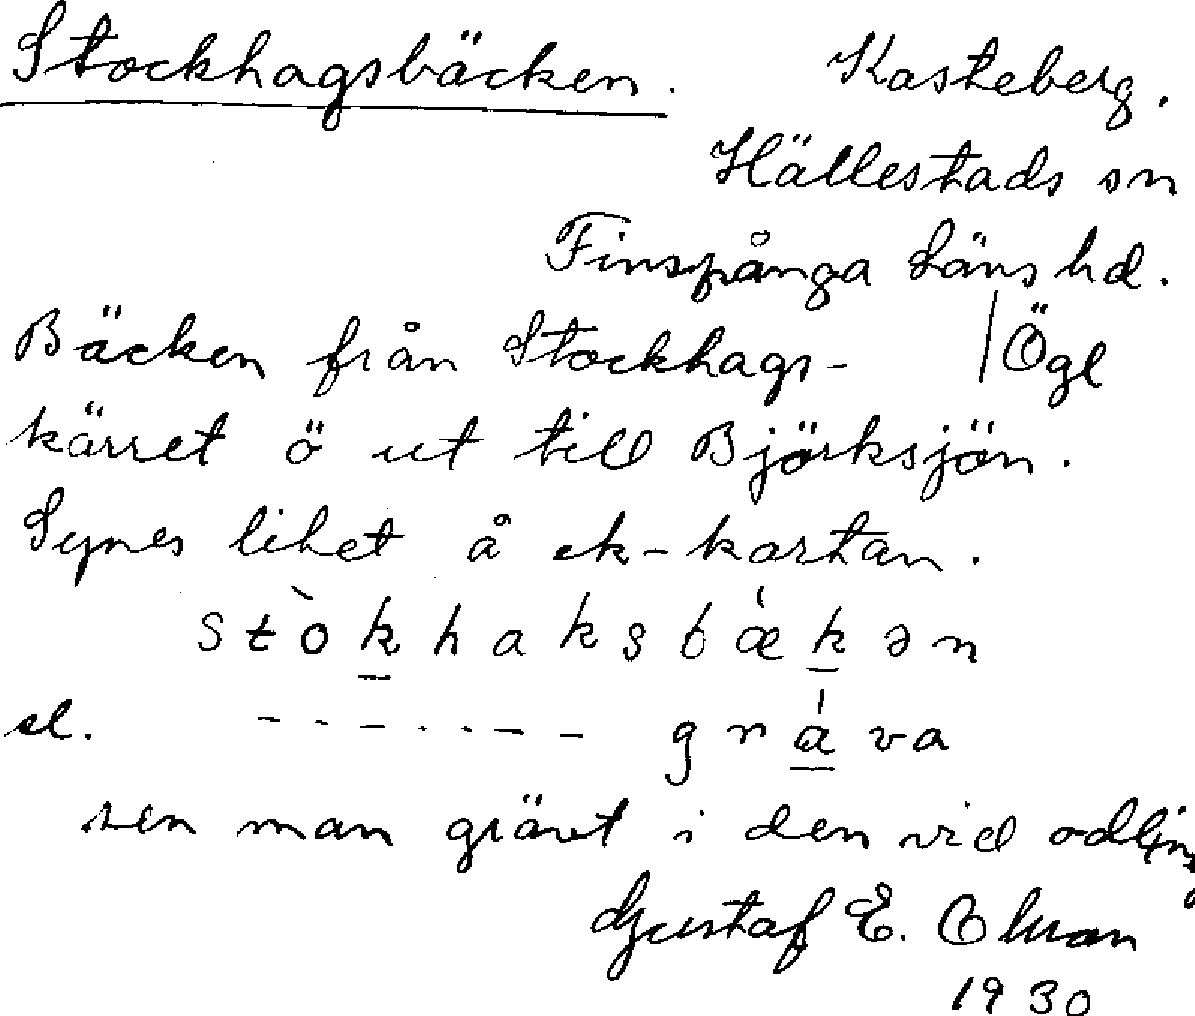 Stockhagsbäcken. Kasteberg.
Hällestads sn
Finspånga Läns hd.
Bäcken från Stockhags- | Ögl
kärret ö ut till Björksjön.
Synes liket å ek-kartan.
stòkhaksbǽkən
el. - - - - - - - gráva
sen man grävt i den vid odling
Gustaf E. Olsson
1930